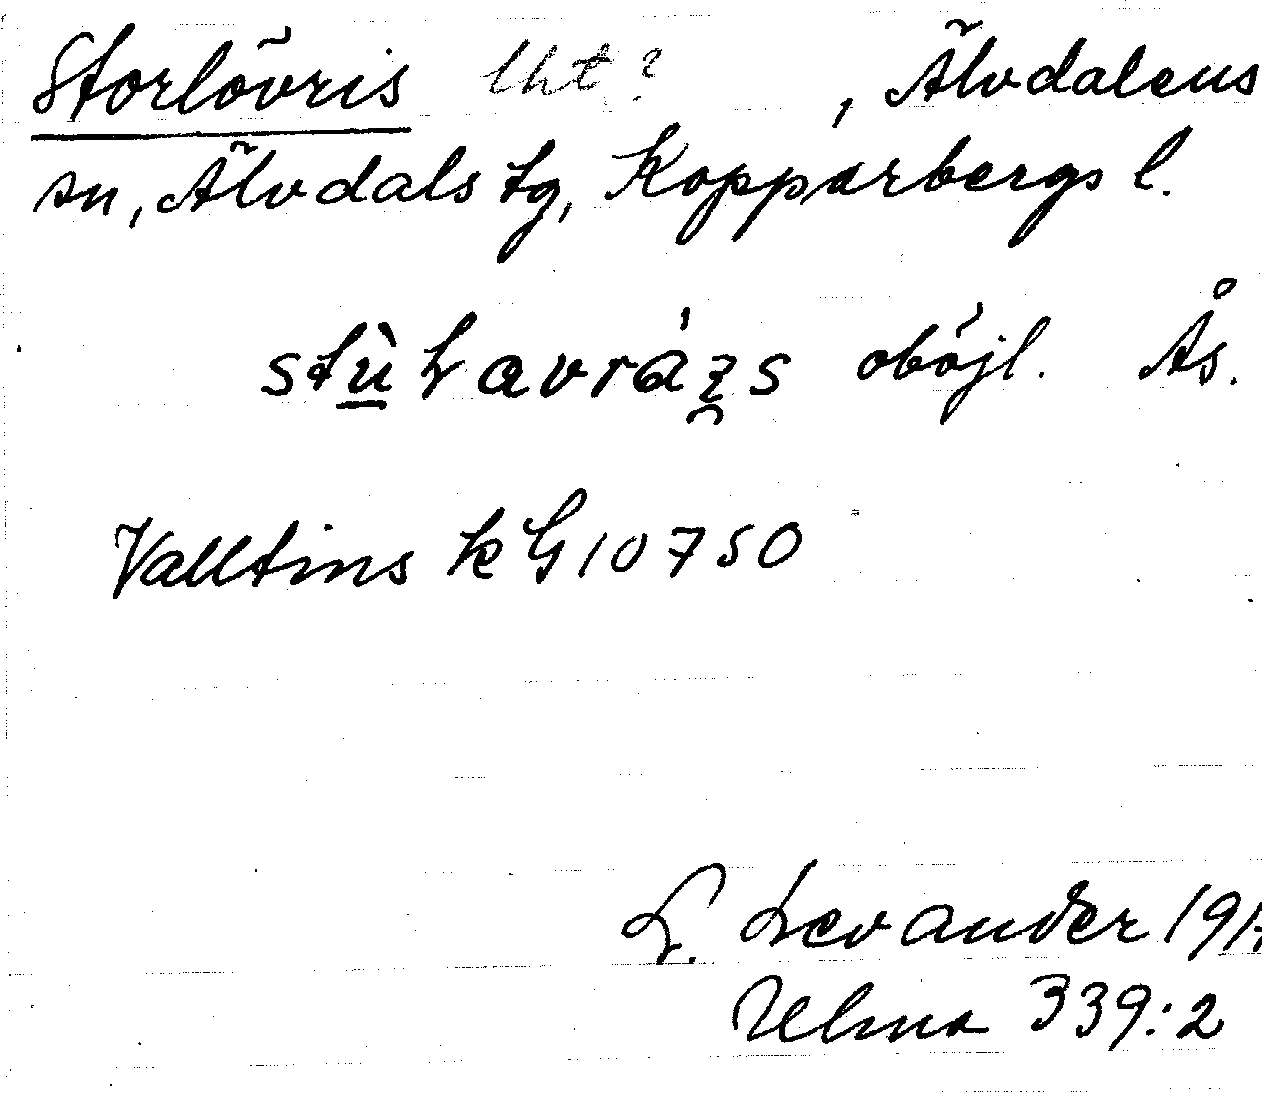 Storlövris lht? , Älvdalens
sn, Älvdals tg, Kopparbergs l.
oböjl. Ås.
Valltins k G 10750
L. Levander
Ulma 339:2